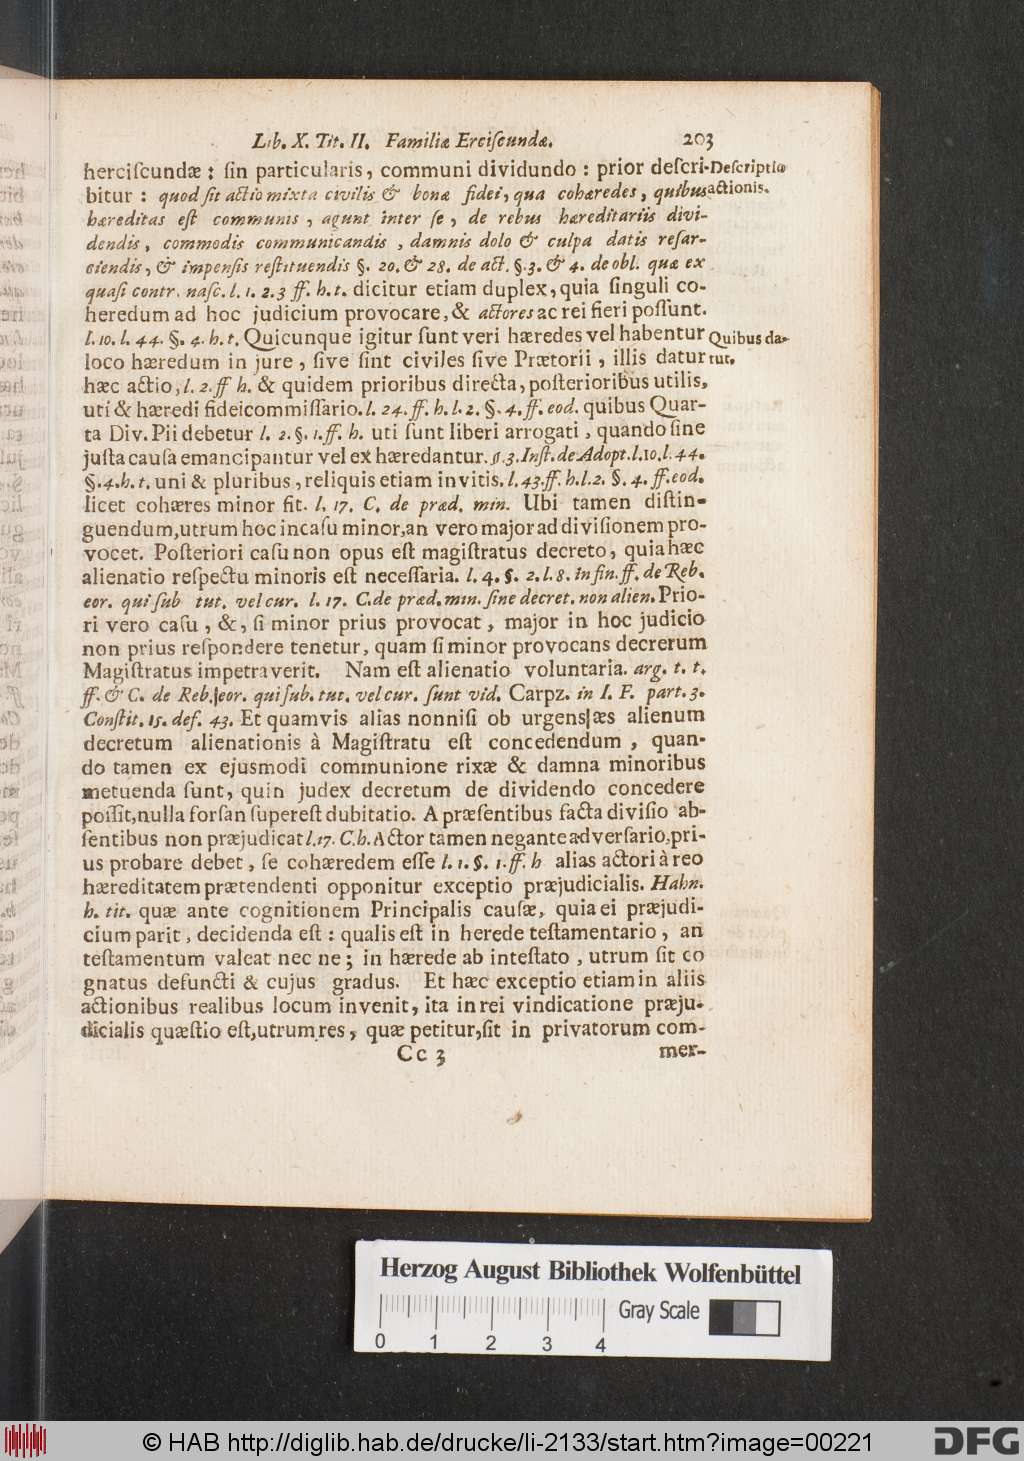 Lib. X. Tit. II. Familiæ Erciſcundæ. 203
herciſcundæ : ſin particularis, communi dividundo : prior deſcri- Deſcriptio
bitur : quod ſit actio mixta civilis & bonæ fidei, qua cohæredes, quibus actionis.
hæreditas eſt communis, agunt inter ſe, de rebus hæreditariis divi-
dendis, commodis communicandis, damnis dolo & culpa datis reſar-
ciendis, & impenſis reſtituendis §. 20. & 28. de act. §. 3. & 4. de obl. quæ ex
quaſi contr. naſc. l. 1. 2. 3 ff. h. t. dicitur etiam duplex, quia ſinguli co-
heredum ad hoc judicium provocare, & actores ac rei fieri poſſunt.
l. 10. l. 44. §. 4. h. t. Quicunque igitur ſunt veri hæredes vel habentur Quibus da-
loco hæredum in jure, ſive ſint civiles ſive Prætorii, illis datur tur.
hæc actio, l. 2. ff h. & quidem prioribus directa, poſterioribus utilis,
uti & hæredi fideicommiſſario. l. 24. ff. h. l. 2. §. 4. ff. eod. quibus Quar-
ta Div. Pii debetur l. 2. §. 1. ff. h. uti ſunt liberi arrogati, quando ſine
juſta cauſa emancipantur vel exhæredantur. §. 3. Inſt. de Adopt. l. 10. l. 44.
§. 4. h. t. uni & pluribus, reliquis etiam invitis. l. 43. ff. h. l. 2. §. 4. ff. eod.
licet cohæres minor ſit. l. 17. C. de præd. min. Ubi tamen diſtin-
guendum, utrum hoc in caſu minor, an vero major ad diviſionem pro-
vocet. Poſteriori caſu non opus eſt magiſtratus decreto, quia hæc
alienatio reſpectu minoris eſt neceſſaria. l. 4. §. 2. l. 8. in fin. ff. de Reb.
eor. qui ſub tut. vel cur. l. 17. C. de præd. min. ſine decret. non alien. Prio-
ri vero caſu, &, ſi minor prius provocat, major in hoc judicio
non prius reſpondere tenetur, quam ſi minor provocans decrerum
Magiſtratus impetraverit. Nam eſt alienatio voluntaria. arg. t. t.
ff. & C. de Reb. eor. qui ſub. tut. vel cur. ſunt vid. Carpz. in I. F. part. 3.
Conſtit. 15. def. 43. Et quamvis alias nonniſi ob urgens æs alienum
decretum alienationis à Magiſtratu eſt concedendum, quan-
do tamen ex ejusmodi communione rixæ & damna minoribus
metuenda ſunt, quin judex decretum de dividendo concedere
poſſit, nulla forſan ſupereſt dubitatio. A præſentibus facta diviſio ab-
ſentibus non præjudicat l. 17. C. h. Actor tamen negante adverſario, pri-
us probare debet, ſe cohæredem eſſe l. 1. §. 1. ff. h alias actori à reo
hæreditatem prætendenti opponitur exceptio præjudicialis. Hahn.
h. tit. quæ ante cognitionem Principalis cauſæ, quia ei præjudi-
cium parit, decidenda eſt : qualis eſt in herede teſtamentario, an
teſtamentum valeat nec ne ; in hærede ab inteſtato, utrum ſit co
gnatus defuncti & cujus gradus. Et hæc exceptio etiam in aliis
actionibus realibus locum invenit, ita in rei vindicatione præju-
dicialis quæſtio eſt, utrum res, quæ petitur, ſit in privatorum com-
Cc 3 mer-
Herzog August Bibliothek Wolfenbüttel
0 1 2 3 4 Gray Scale
© HAB http://diglib.hab.de/drucke/li-2133/start.htm?image=00221 DFG